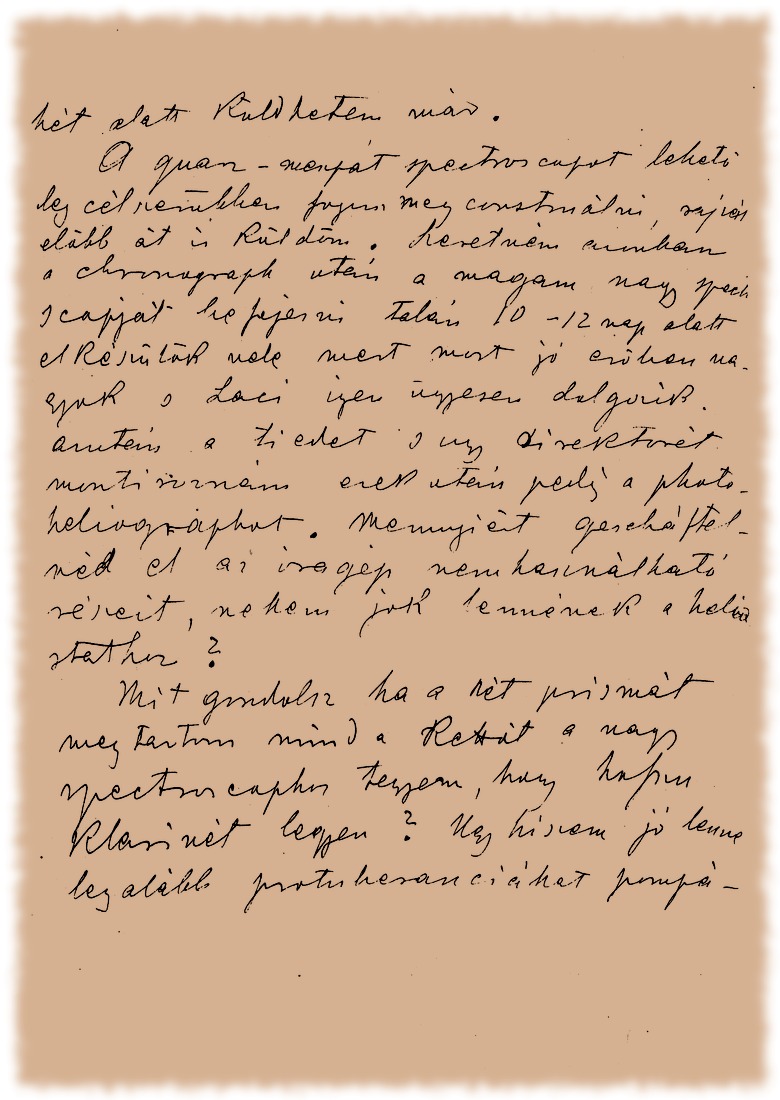 hét alatt küldhetem már.
A quarz-menját spectroscopot lehető
leg célszerűbben fogom meg construálni, rajzát
előbb át is küldöm. Szeretném azonban
a chronograph után a magam nagy spectr
scopját befejezni talán 10-12 nap alatt
elkészülök vele mert most jó erőben va-
gyok s Laci igen ügyesen dolgozik.
azután a tiedet s egy direktorét
montiroznám ezek után pedig a photo-
heliographot. Mennyiért geschäftel-
néd el az iragép nem használható
részeit, nekem jók lennének a helio
stathoz?
Mit gondolsz ha a két prismát
megtartom mind a kettőt a nagy
spectroscophoz tegyem, hogy hosszu
klarinét legyen? Ugy hiszem jó lenne
legalább protuberancziákat pompá-